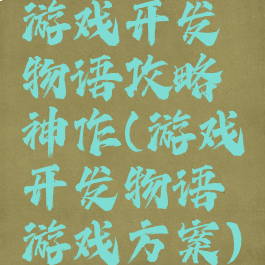 游戏开发
物语攻略
神作(游戏
开发物语
游戏方案)